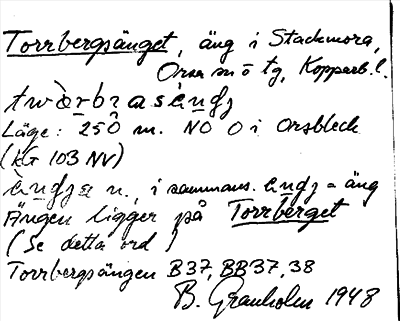 Torrbergsänget, äng i Stackmora,
Orsa sn ö tg, Kopparb. l.
Läge: 250 m. NO O i Orsbleck
(kG 103 NV)
n., i sammans. = äng
Ängen ligger på Torrberget
(Se detta ord)
Torrbergsängen B37, BB37, 38
B. Granholm 1948